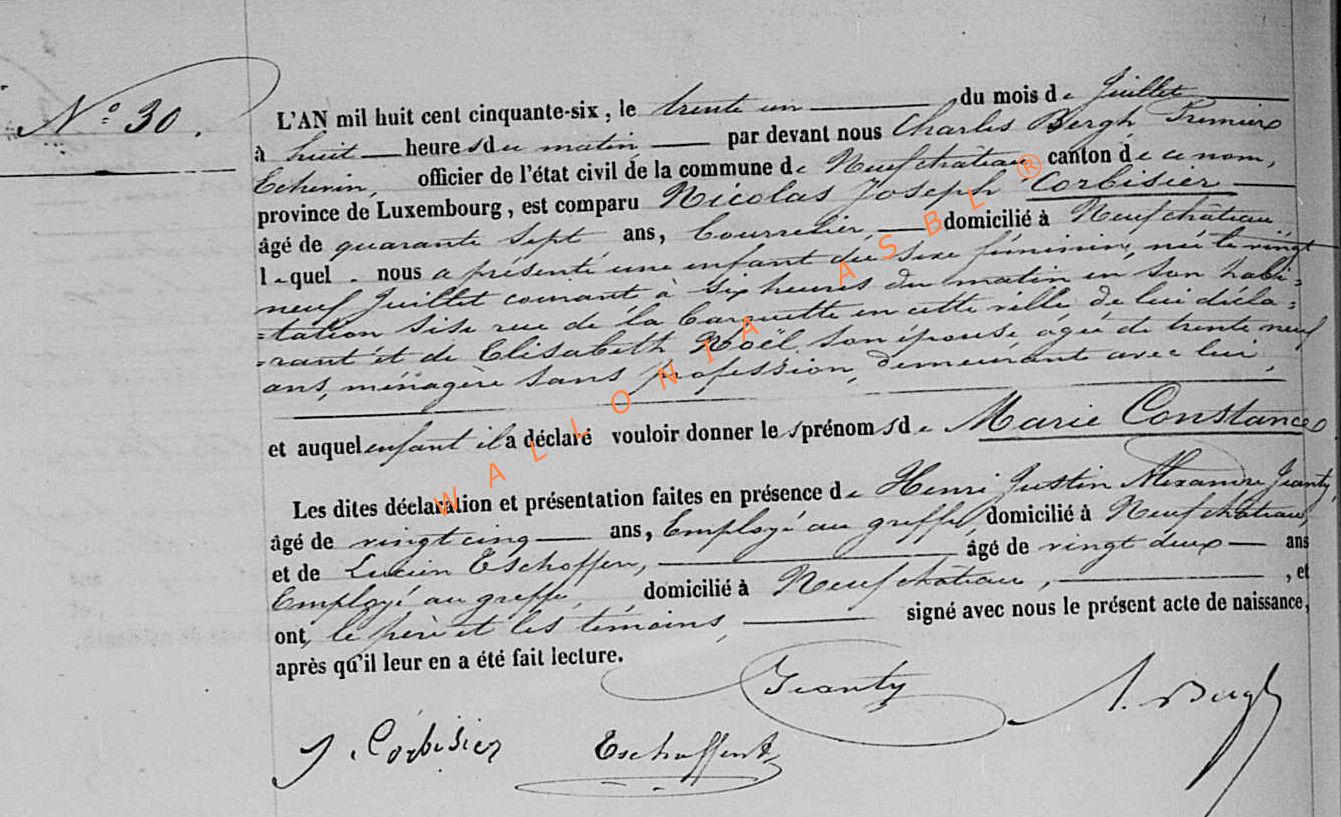 N° 30.
L'AN mil huit cent cinquante-six, le trente un du mois de Juillet
à huit heures du matin par devant nous Charles Bergh Premier
Echevin, officier de l'état civil de la commune de Neufchâteau canton de ce nom,
province de Luxembourg, est comparu Nicolas Joseph Corbisier
âgé de quarante sept ans, Bourrelier, domicilié à Neufchâteau
lequel nous a présenté une enfant du sexe féminin, née le vingt
neuf Juillet courant à six heures du matin en son habi=
=tation sise rue de la en cette ville, de lui décla=
=rant et de Elisabeth Noël son épouse âgée de trente neuf
ans, ménagère sans profession, demeurant avec lui,
et auquel enfant il a déclaré vouloir donner les prénoms de Marie Constance
Les dites déclaration et présentation faites en présence de Henri Justin Alexandre Jeanty,
âgé de vingt cinq ans, Employé au greffe, domicilié à Neufchâteau,
et de Lucien Eschoffen, âgé de vingt deux ans
Employé au greffe, domicilié à Neufchâteau, , et
ont, le père et les témoins, signé avec nous le présent acte de naissance,
après qu'il leur en a été fait lecture.
Jeanty
Bergh
J. Corbisier
WALLONIA ASBL ®